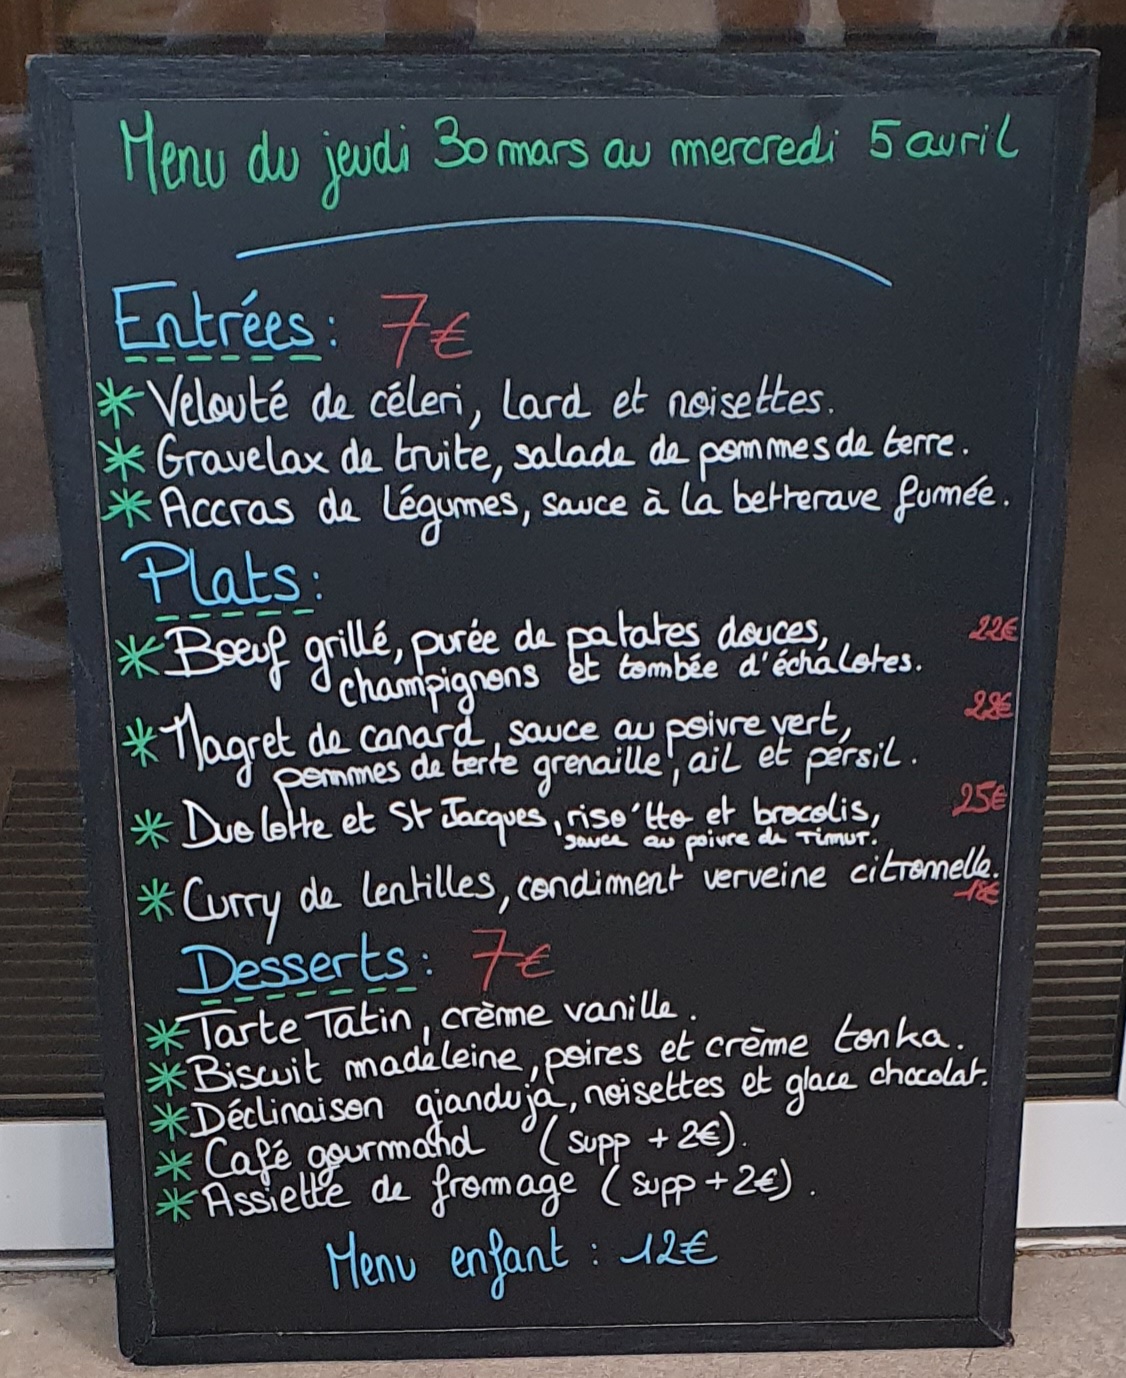 Menu du jeudi 30 mars au mercredi 5 avril
Entrées : 7€
* Velouté de céleri, lard et noisettes.
* Gravelax de truite, salade de pommes de terre.
* Accras de légumes, sauce à la betterave fumée.
Plats :
* Boeuf grillé, purée de patates douces, 22€
champignons et tombée d'échalotes.
* Magret de canard, sauce au poivre vert, 22€
pommes de terre grenaille, ail et persil.
* Duo lotte et St Jacques, riso'tto et brocolis, 25€
sauce au poivre de Timur.
* Curry de lentilles, condiment verveine citronnelle.
18€
Desserts : 7€
* Tarte Tatin, crème vanille.
* Biscuit madeleine, poires et crème tonka.
* Déclinaison gianduja, noisettes et glace chocolat.
* Café gourmand (supp + 2€).
* Assiette de fromage (supp + 2€).
Menu enfant : 12€